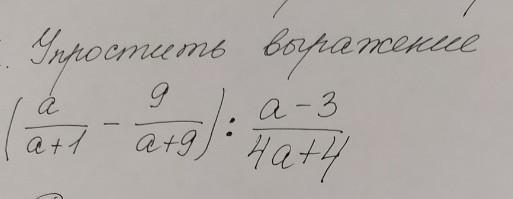 Упростить выражение
(a/(a+1) - 9/(a+9)) : (a-3)/(4a+4)